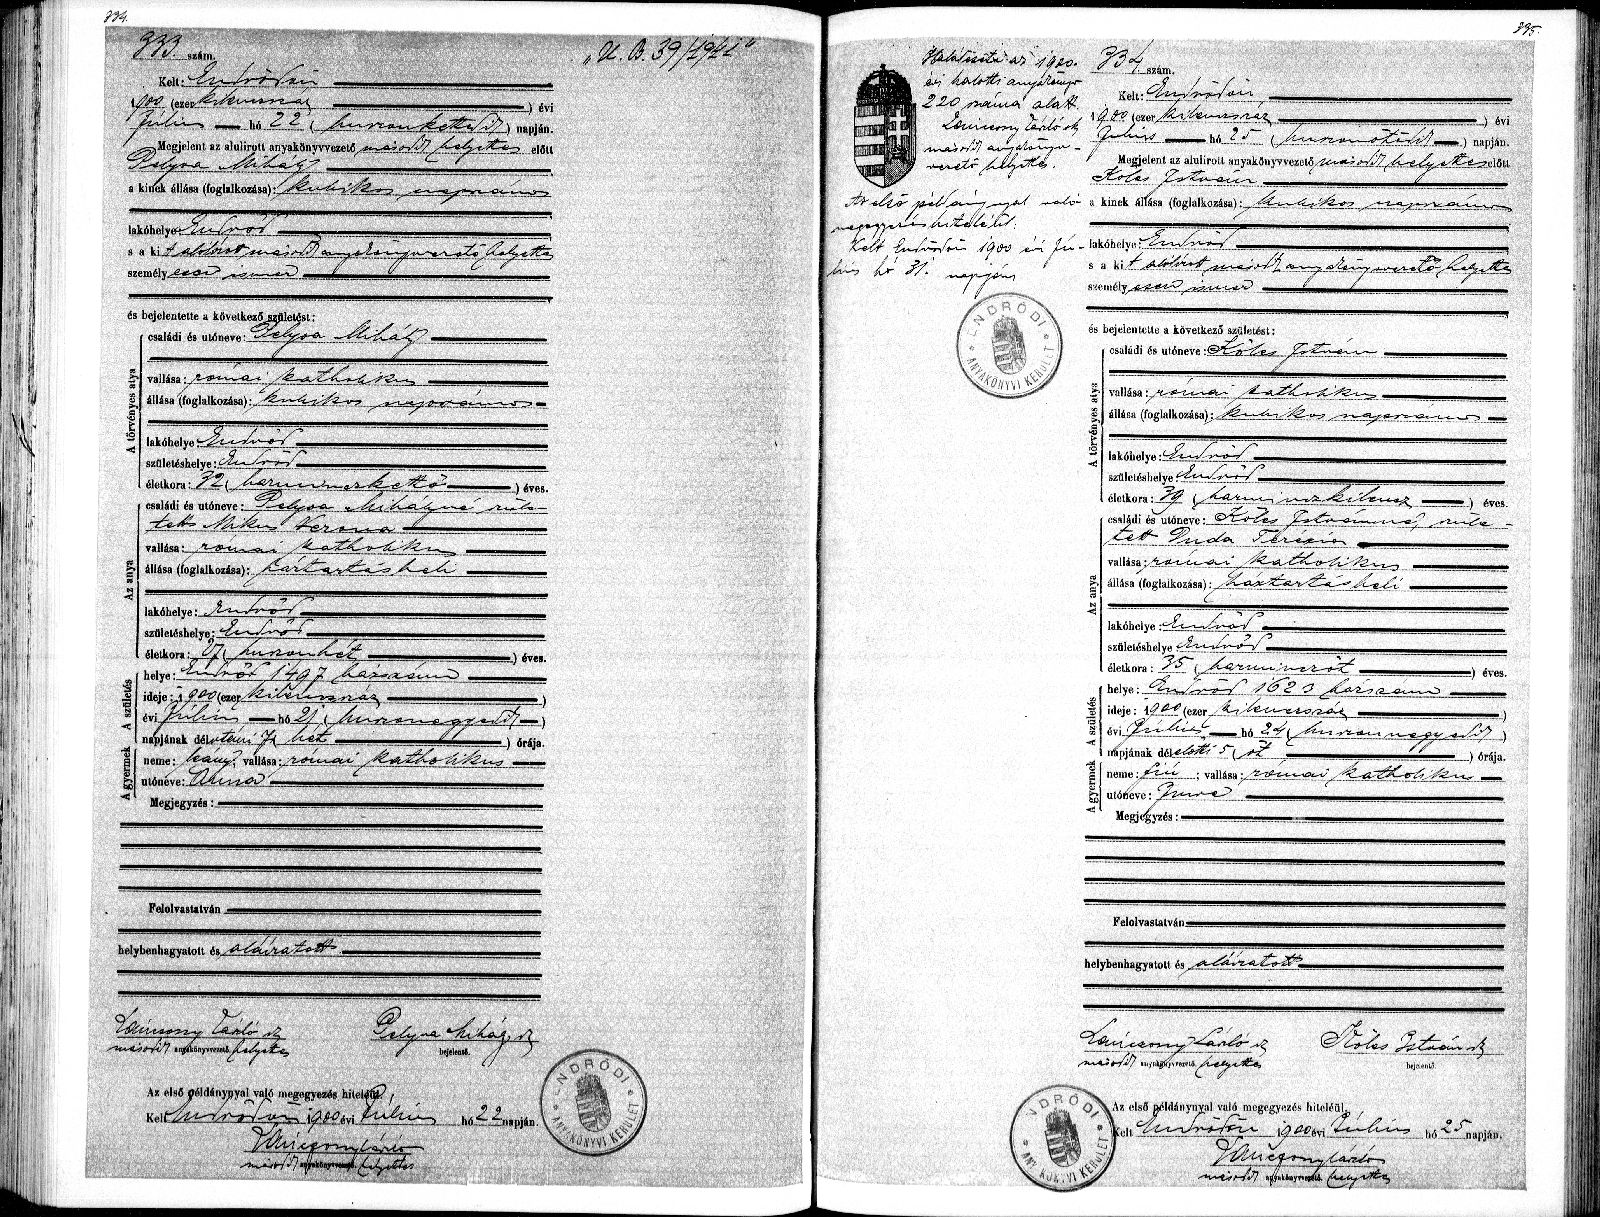 334.
333 szám.
„U. B. 39/1941"
Kelt: Endrődön
1900 (ezer kilencszáz ) évi
Július hó 22 ( huszonkettedik ) napján.
Megjelent az alulirott anyakönyvvezető másodh helyettes előtt
Pelyva Mihály
a kinek állása (foglalkozása): kubikos napszámos
lakóhelye Endrőd
s a kit alólirott másodh anyakönyvvezető helyettes
személyesen ismer
és bejelentette a következő születést:
A törvényes atya
családi és utóneve: Pelyva Mihály
vallása: római katholikus
állása (foglalkozása): kubikos napszámos
lakóhelye Endrőd
születéshelye: Endrőd
életkora: 32 (harminczkettő ) éves.
Az anya
családi és utóneve: Pelyva Mihályné szüle-
tett Mikus Verona
vallása: római katholikus
állása (foglalkozása): háztartásbeli
lakóhelye: Endrőd
születéshelye: Endrőd
életkora: 27 ( huszonhét ) éves.
A születés
helye: Endrőd 1497 házszám
ideje: 1900 (ezer kilencszáz )
évi Július hó 21 ( huszonegyedik )
napjának délutáni 7 ( hét ) órája.
A gyermek
neme: leány; vallása: római katholikus
utóneve: Anna
Megjegyzés:
Felolvastatván
helybenhagyatott és aláiratott
Lancsony László sk
másodh anyakönyvvezető. helyettes
Pelyva Mihály sk
bejelentő.
Az első példánynyal való megegyezés hiteléül.
Kelt Endrődön 1900 évi Július hó 22 napján.
másodh anyakönyvvezető. helyettes
ENDRŐDI ANYAKÖNYVI KERÜLET
335.
Halálesete az 1900.
évi halotti anyakönyv
220 száma alatt.
László sk
másodh anyakönyv-
vezető helyettes.
Az első példánynyal való
megegyezés hiteléül.
Kelt Endrődön 1900 évi Jú-
lius hó 31. napján
ENDRŐDI ANYAKÖNYVI KERÜLET
334. szám.
Kelt: Endrődön
1900 (ezer kilencszáz ) évi
Július hó 25 ( huszonötödik ) napján.
Megjelent az alulirott anyakönyvvezető másodh helyettes előtt
Kólcs István
a kinek állása (foglalkozása): kubikos napszámos
lakóhelye: Endrőd
s a kit alólirott másodh anyakönyvvezető helyettes
személyesen ismer
és bejelentette a következő születést:
A törvényes atya
családi és utóneve: Kólcs István
vallása: római katholikus
állása (foglalkozása): kubikos napszámos
lakóhelye: Endrőd
születéshelye Endrőd
életkora: 39 (harminczkilencz ) éves.
Az anya
családi és utóneve: Kólcs Istvánné, szüle-
tett Duda Terézia
vallása: római katholikus
állása (foglalkozása): háztartásbeli
lakóhelye: Endrőd
születéshelye Endrőd
életkora: 35 (harminczöt ) éves.
A születés
helye: Endrőd 1623 házszám
ideje: 1900 (ezer kilencszáz )
évi Július hó 24 ( huszonnegyedik )
napjának délelőtti 5 (öt ) órája.
A gyermek
neme: fiú ; vallása: római katholikus
utóneve: Imre
Megjegyzés:
Felolvastatván
helybenhagyatott és aláiratott
Lancsony László sk
másodh anyakönyvvezető. helyettes
Kólcs István sk
bejelentő.
Az első példánynyal való megegyezés hiteléül.
Kelt Endrődön 1900 évi Július hó 25 napján.
másodh anyakönyvvezető. helyettes
ENDRŐDI ANYAKÖNYVI KERÜLET